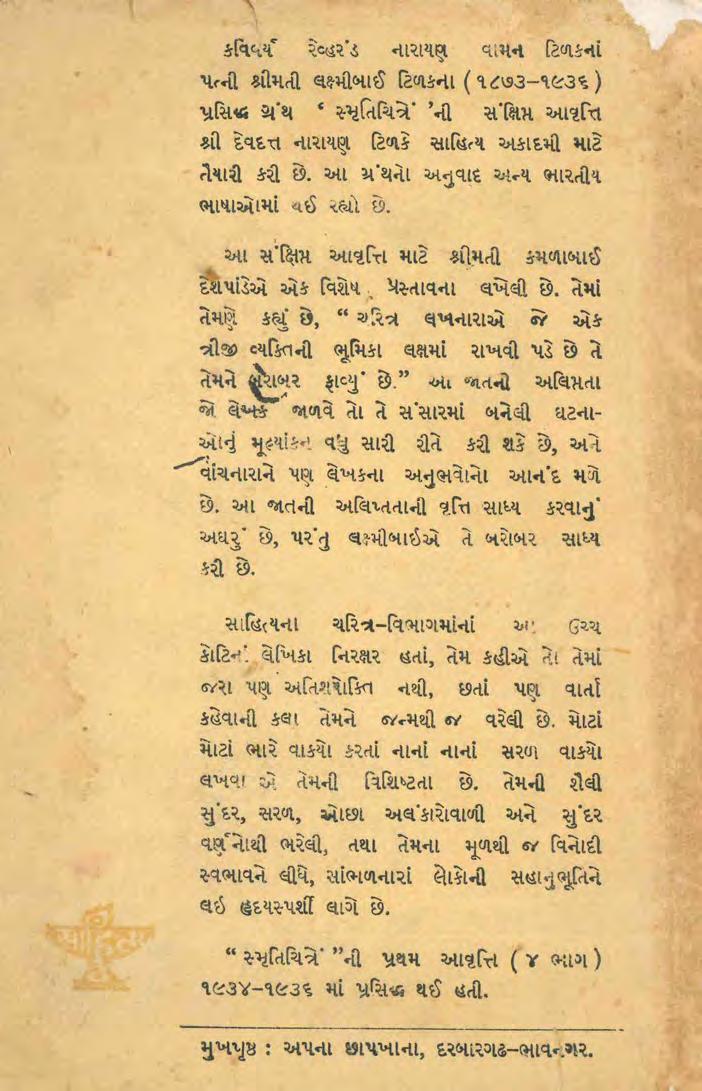 કવિવર્ય રેવ્હરંડ નારાયણ વામન ટિળકનાં
પત્ની શ્રીમતી લક્ષ્મીબાઈ ટિળકના ( ૧૮૭૩–૧૯૩૬ )
પ્રસિદ્ધ ગ્રંથ ‘ સ્મૃતિચિત્રેં ’ની સંક્ષિપ્ત આવૃત્તિ
શ્રી દેવદત્ત નારાયણ ટિળકે સાહિત્ય અકાદમી માટે
તૈયારી કરી છે. આ ગ્રંથનો અનુવાદ અન્ય ભારતીય
ભાષાઓમાં થઈ રહ્યો છે.
આ સંક્ષિપ્ત આવૃત્તિ માટે શ્રીમતી કમળાબાઈ
દેશપાંડેએ એક વિશેષ પ્રસ્તાવના લખેલી છે. તેમાં
તેમણે કહ્યું છે, “ ચરિત્ર લખનારાએ જે એક
ત્રીજી વ્યક્તિની ભૂમિકા લક્ષમાં રાખવી પડે છે તે
તેમને બરાબર ફાવ્યું છે.” આ જાતની અલિપ્તતા
જો લેખક જાળવે તો તે સંસારમાં બનેલી ઘટના-
ઓનું મૂલ્યાંકન વધુ સારી રીતે કરી શકે છે, અને
વાંચનારાને પણ લેખકના અનુભવોનો આનંદ મળે
છે. આ જાતની અલિપ્તતાની વૃત્તિ સાધ્ય કરવાનું
અઘરું છે, પરંતુ લક્ષ્મીબાઈએ તે બરોબર સાધ્ય
કરી છે.
સાહિત્યના ચરિત્ર–વિભાગમાંનાં આ ઉચ્ચ
કોટિનાં લેખિકા નિરક્ષર હતાં, તેમ કહીએ તો તેમાં
જરા પણ અતિશયોક્તિ નથી, છતાં પણ વાર્તા
કહેવાની કલા તેમને જન્મથી જ વરેલી છે. મોટાં
મોટાં ભારે વાકયો કરતાં નાનાં નાનાં સરળ વાકયો
લખવા એ તેમની વિશિષ્ટતા છે. તેમની શૈલી
સુંદર, સરળ, ઓછા અલંકારોવાળી અને સુંદર
વર્ણનોથી ભરેલી, તથા તેમના મૂળથી જ વિનોદી
સ્વભાવને લીધે, સાંભળનારાં લોકોની સહાનુભૂતિને
લઇ હૃદયસ્પર્શી લાગે છે.
“ સ્મૃતિચિત્રેં ”ની પ્રથમ આવૃત્તિ ( ૪ ભાગ )
૧૯૩૪–૧૯૩૬ માં પ્રસિદ્ધ થઈ હતી.
મુખપૃષ્ઠ : અપના છાપખાના, દરબારગઢ–ભાવનગર.